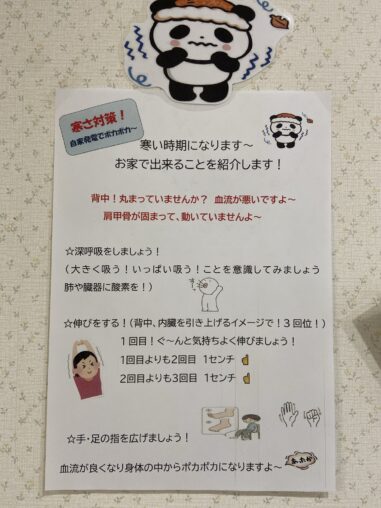 寒さ対策！
自家発電でポカポカ～
寒い時期になります～
お家で出来ることを紹介します！
背中！丸まっていませんか？ 血流が悪いですよ～
肩甲骨が固まって、動いていませんよ～
☆深呼吸をしましょう！
（大きく吸う！いっぱい吸う！ことを意識してみましょう
肺や臓器に酸素を！）
☆伸びをする！（背中、内臓を引き上げるイメージで！３回位！）
１回目！ぐ～んと気持ちよく伸びましょう！
１回目よりも２回目 １センチ☝
２回目よりも３回目 １センチ☝
☆手・足の指を広げましょう！
血流が良くなり身体の中からポカポカになりますよ～